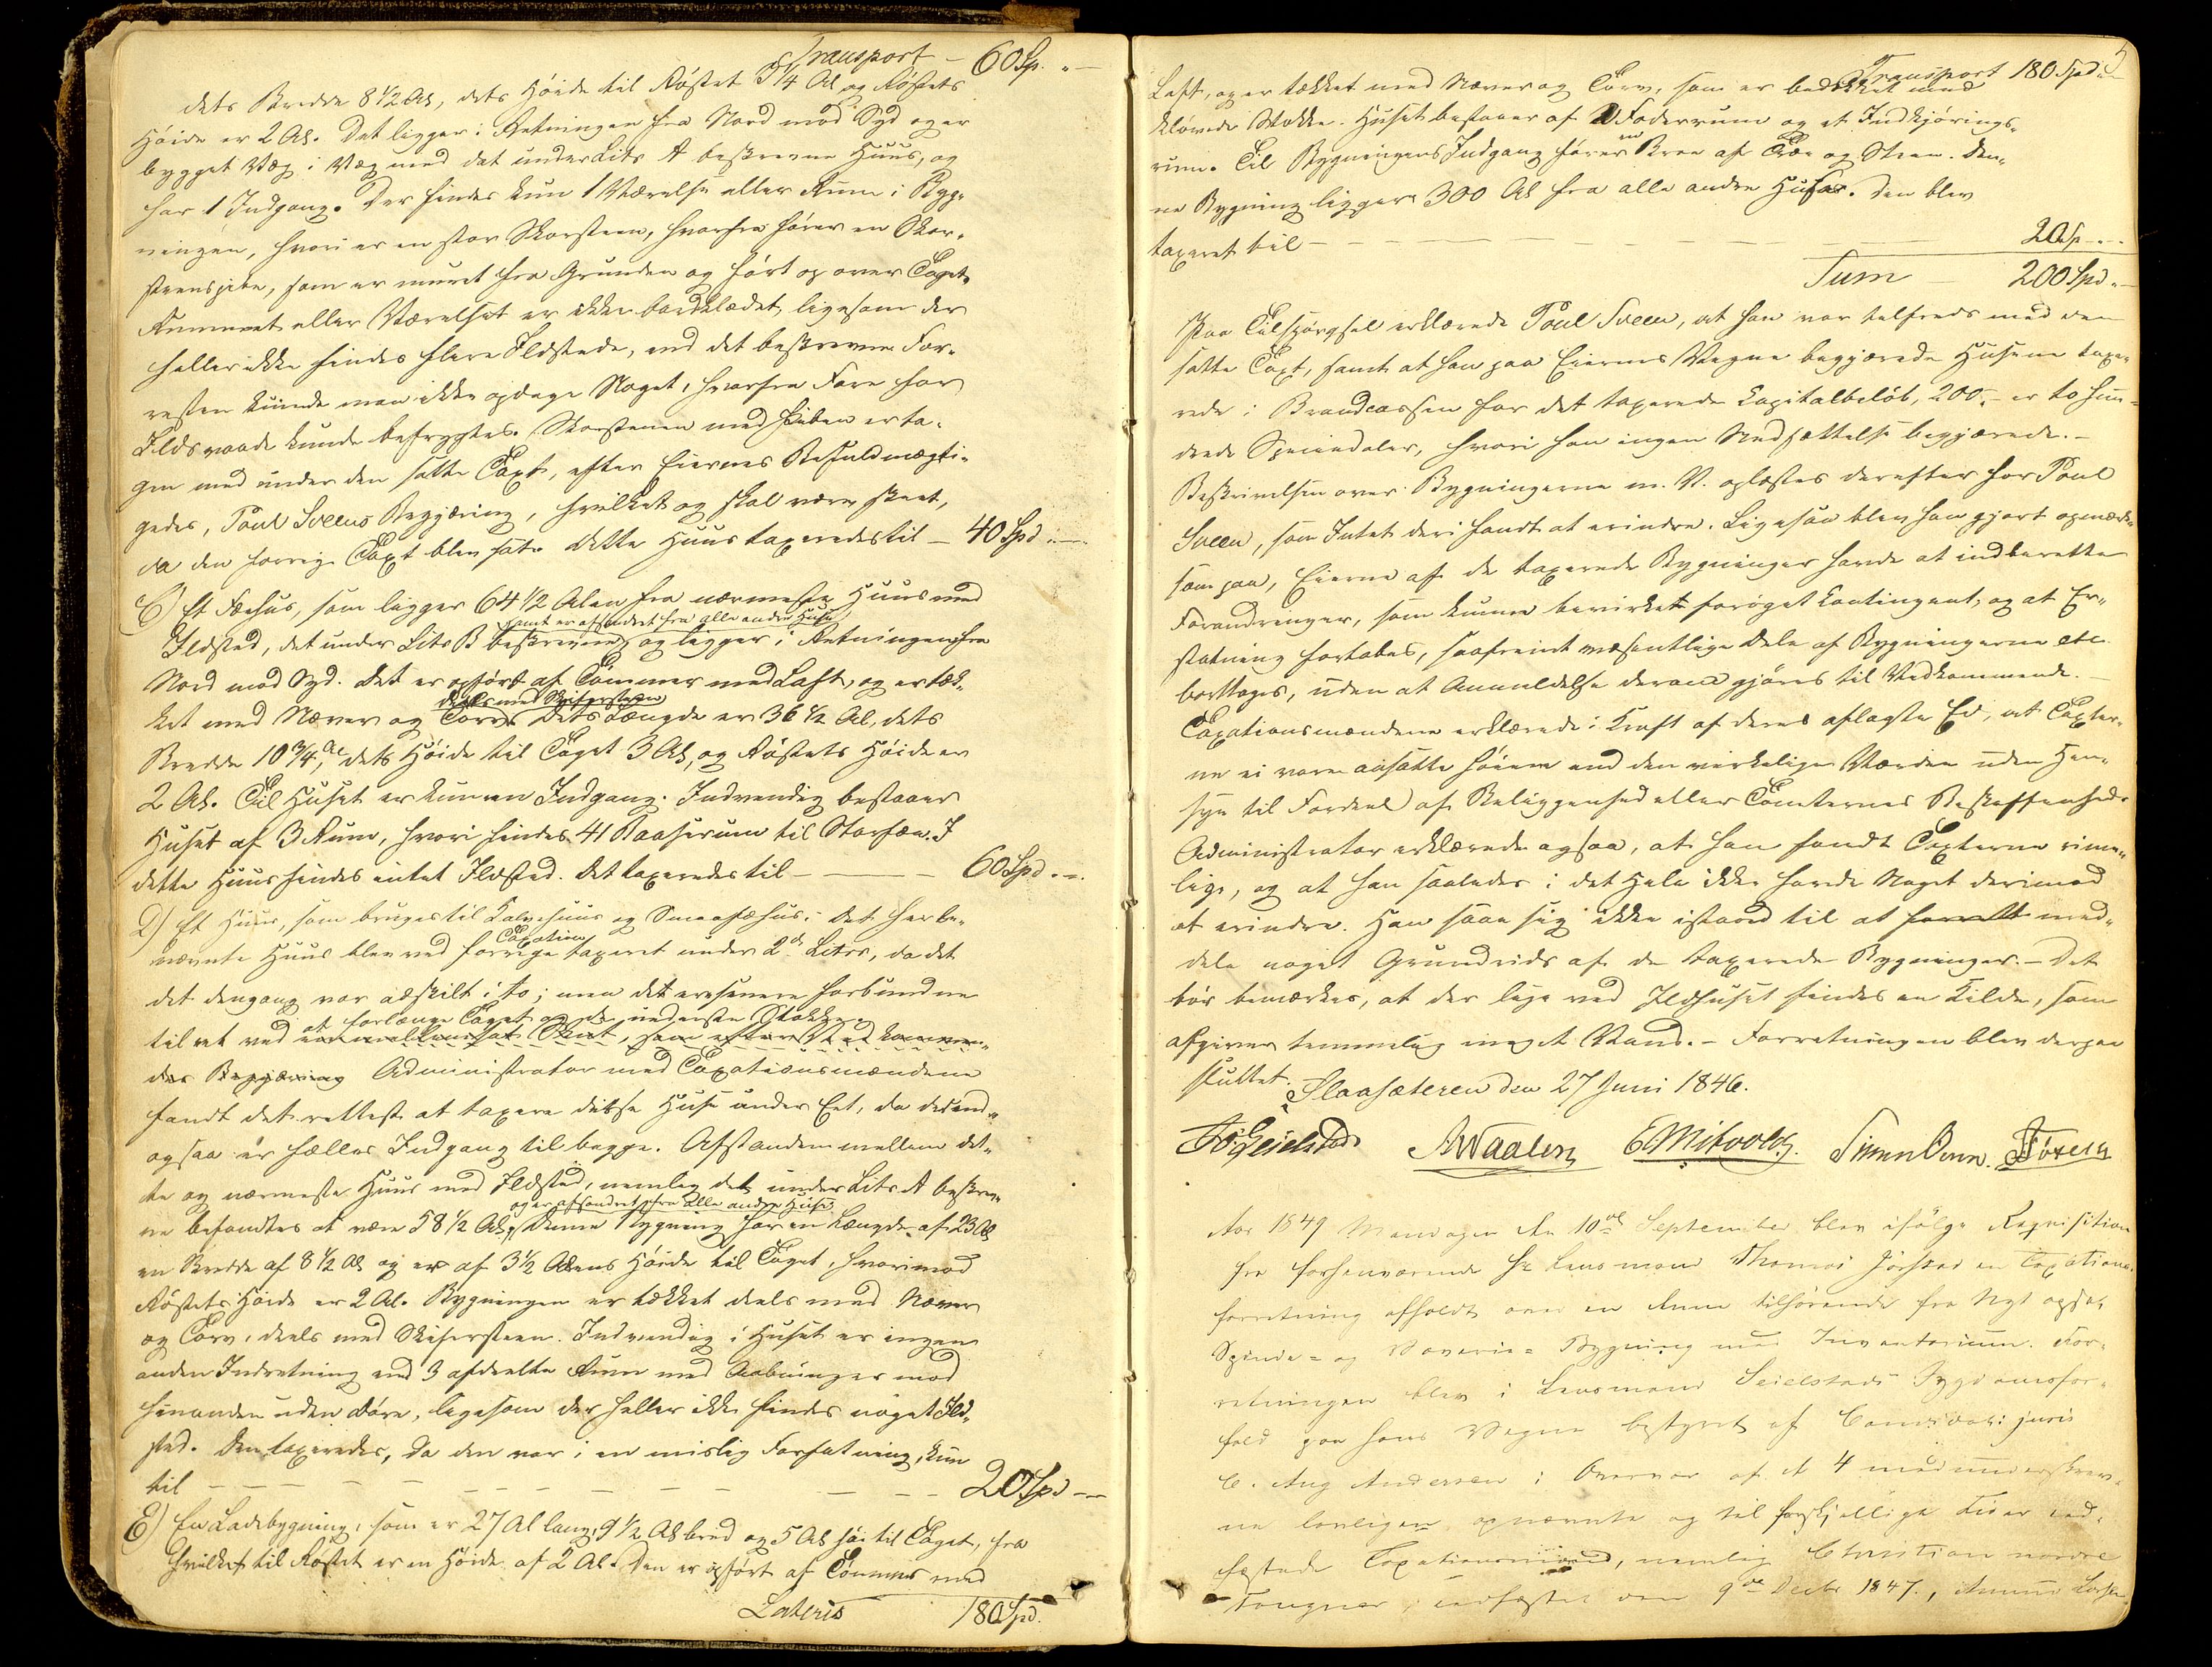 Transport – 60 Sp. " –
dets Bredde 8 1/2 Al, dets Höide til Röstet 3 1/4 Al og Röstets
Höide er 2 Al. Det ligger i Retningen fra Nord mod Syd og er
bygget Væg i Væg med det under Litr A beskrevne Huus, og
har 1 Indgang. Der findes kun 1 Værelse eller Rum i Byg-
ningen, hvori er en stor Skorsteen, hvorfra förer en Skor-
steenspibe, som er muret fra Grunden og fört op over Taget.
Rummet eller Værelset er ikke bordklædet, ligesom der
heller ikke findes flere Ildsteder, end det beskrevne. For-
resten kunde man ikke opdage Noget, hvorfra Fare for
Ildsvaade kunde befrygtes. Skorstenen med Piben er ta-
gen med under den satte Taxt, efter Eiernes Befuldmægti-
gedes, Poul Sveens Begjæring, hvilket og skal være skeet,
da den forrige Taxt blev sat. Dette Huus taxeredes til – 40 Spd " –
C) Et Fæehus, som ligger 64 1/2 Alen fra nærmeste Huus med
samt er afsondret fra alle andre Huse
Ildsted, det under Litr B beskrevne, og ligger i Retningen fra
Nord mod Syd. Det er opfört af Tömmer med Laft, og er tæk-
deels med Skifersteen
ket med Næver og Torv. Dets Længde er 36 1/2 Al, dets
Bredde 10 3/4 Al, dets Höide til Taget 3 Al, og Röstets Höide er
2 Al. Til Huset er kun en Indgang. Indvendig bestaaer
Huset af 3 Rum, hvori findes 41 Baaserum til Storfæe. I
dette Huus findes intet Ildsted. Det taxeredes til – 60 Spd " –
D) Et Huus, som bruges til Kalvehuus og Smaafæhus. Det her be-
Taxation
nævnte Huus blev ved forrige taxeret under 2de Litrr, da det
det dengang var adskilt i to; men det er senere forbundne
at forlænge Taget og de nederste Stokke.
til et ved
der Begjæring Administrator med Taxationsmændene
fandt det rettest at taxere disse Huse under Eet, da desuden
ogsaa er fælles Indgang til begge. Afstanden mellem det-
te og nærmeste Huus med Ildsted, nemlig det under Litr A beskrev-
og er afsondret fra alle andre Huse
ne befandtes at være 58 1/2 Al. Denne Bygning har en Længde af 23 Al
en Bredde af 8 1/2 Al og er af 3 1/2 Alens Höide til Taget, hvorimod
Röstets Höide er 2 Al. Bygningen er tækket deels med Næver
og Torv, deels med Skifersteen. Indvendig i Huset er ingen
anden Indretning end 3 afdeelte Rum med Aabninger mod
hinanden uden Döre, ligesom der heller ikke findes noget Ild-
sted. Den taxeredes, da den var i en mislig Forfatning, kun
til – 20 Spd –
E) En Ladebygning, som er 27 Al lang, 9 1/2 Al bred og 5 Al höi til Taget, fra
hvilket til Röstet er en Höide af 2 Al. Den er opfört af Tömmer med
Lateris 180 Spd.
5
Transport 180 Spd " –
Laft, og er tækket med Næver og Torv, som er bedækket med
klövede Stokke. Huset bestaaer af 2 Foderrum og et Indkjörings-
rum. Til Bygningens Indgang förer en Broe af Træ og Steen. Den-
ne Bygning ligger 300 Al fra alle andre Huse. Den blev
taxeret til – 20 Sp – "
Sum – 200 Spd " –
Paa Tilspörgsel erklærede Poul Sveen, at han var tilfreds med den
satte Taxt, samt at han paa Eiernes Vegne begjærede Husene taxe-
rede i Brandcassen for det taxerede Kapitalbelöb, 200 – er to hun-
drede Speciedaler, hvori han ingen Nedsættelse begjærede. –
Beskrivelsen over Bygningerne m. V. oplæstes derefter for Poul
Sveen, som Intet deri fandt at erindre. Ligesaa blev han gjort opmærk-
som paa, Eierne af de taxerede Bygninger havde at indberette
Forandringer, som kunne bevirke foröget Contingent, og at Er-
statning fortabes, saafremt væsentlige Dele af Bygningerne etc
borttages, uden at Anmeldelse derom gjöres til Vedkommende. –
Taxationsmændene erklærede i Kraft af deres aflagte Ed, at Taxter-
ne ei vare ansatte höiere end den virkelige Værdie uden Hen-
syn til Fordeel af Beliggenhed eller Tomternes Beskaffenhed.
Administrator erklærede ogsaa, at han fandt Taxterne rime-
lige, og at han saaledes i det Hele ikke havde Noget derimod
at erindre. Han saae sig ikke istand til at med-
dele noget Grundrids af de taxerede Bygninger. – Det
bör bemærkes, at der lige ved Ildhuset findes en Kilde, som
afgiver temmelig meget Vand. – Forretningen blev derpaa
sluttet. Slaasæteren den 27 Juni 1846.
Aar 1849 Mandagen den 10de September blev ifölge Requisition
fra forhenværende Hr Lensmand Thomas Jörstad en Taxations-
forretning afholdt over en Anna tilhörende fra Nyt opsat
Spinde- og Væverie- Bygning med Inventarium. For-
retningen blev i Lensmand Seielstads Sygdomsfor-
fald paa hans Vegne bestyret af Candidat: juris
C. Aug Andersen i Overvær af de 4 medunderskrev-
ne lovligen opnævnte og til forskjellige Tider ed-
fæstede Taxationsmænd, nemlig Christian nordre
Tougner, edfæstet den 9de Decbr 1847, Amund